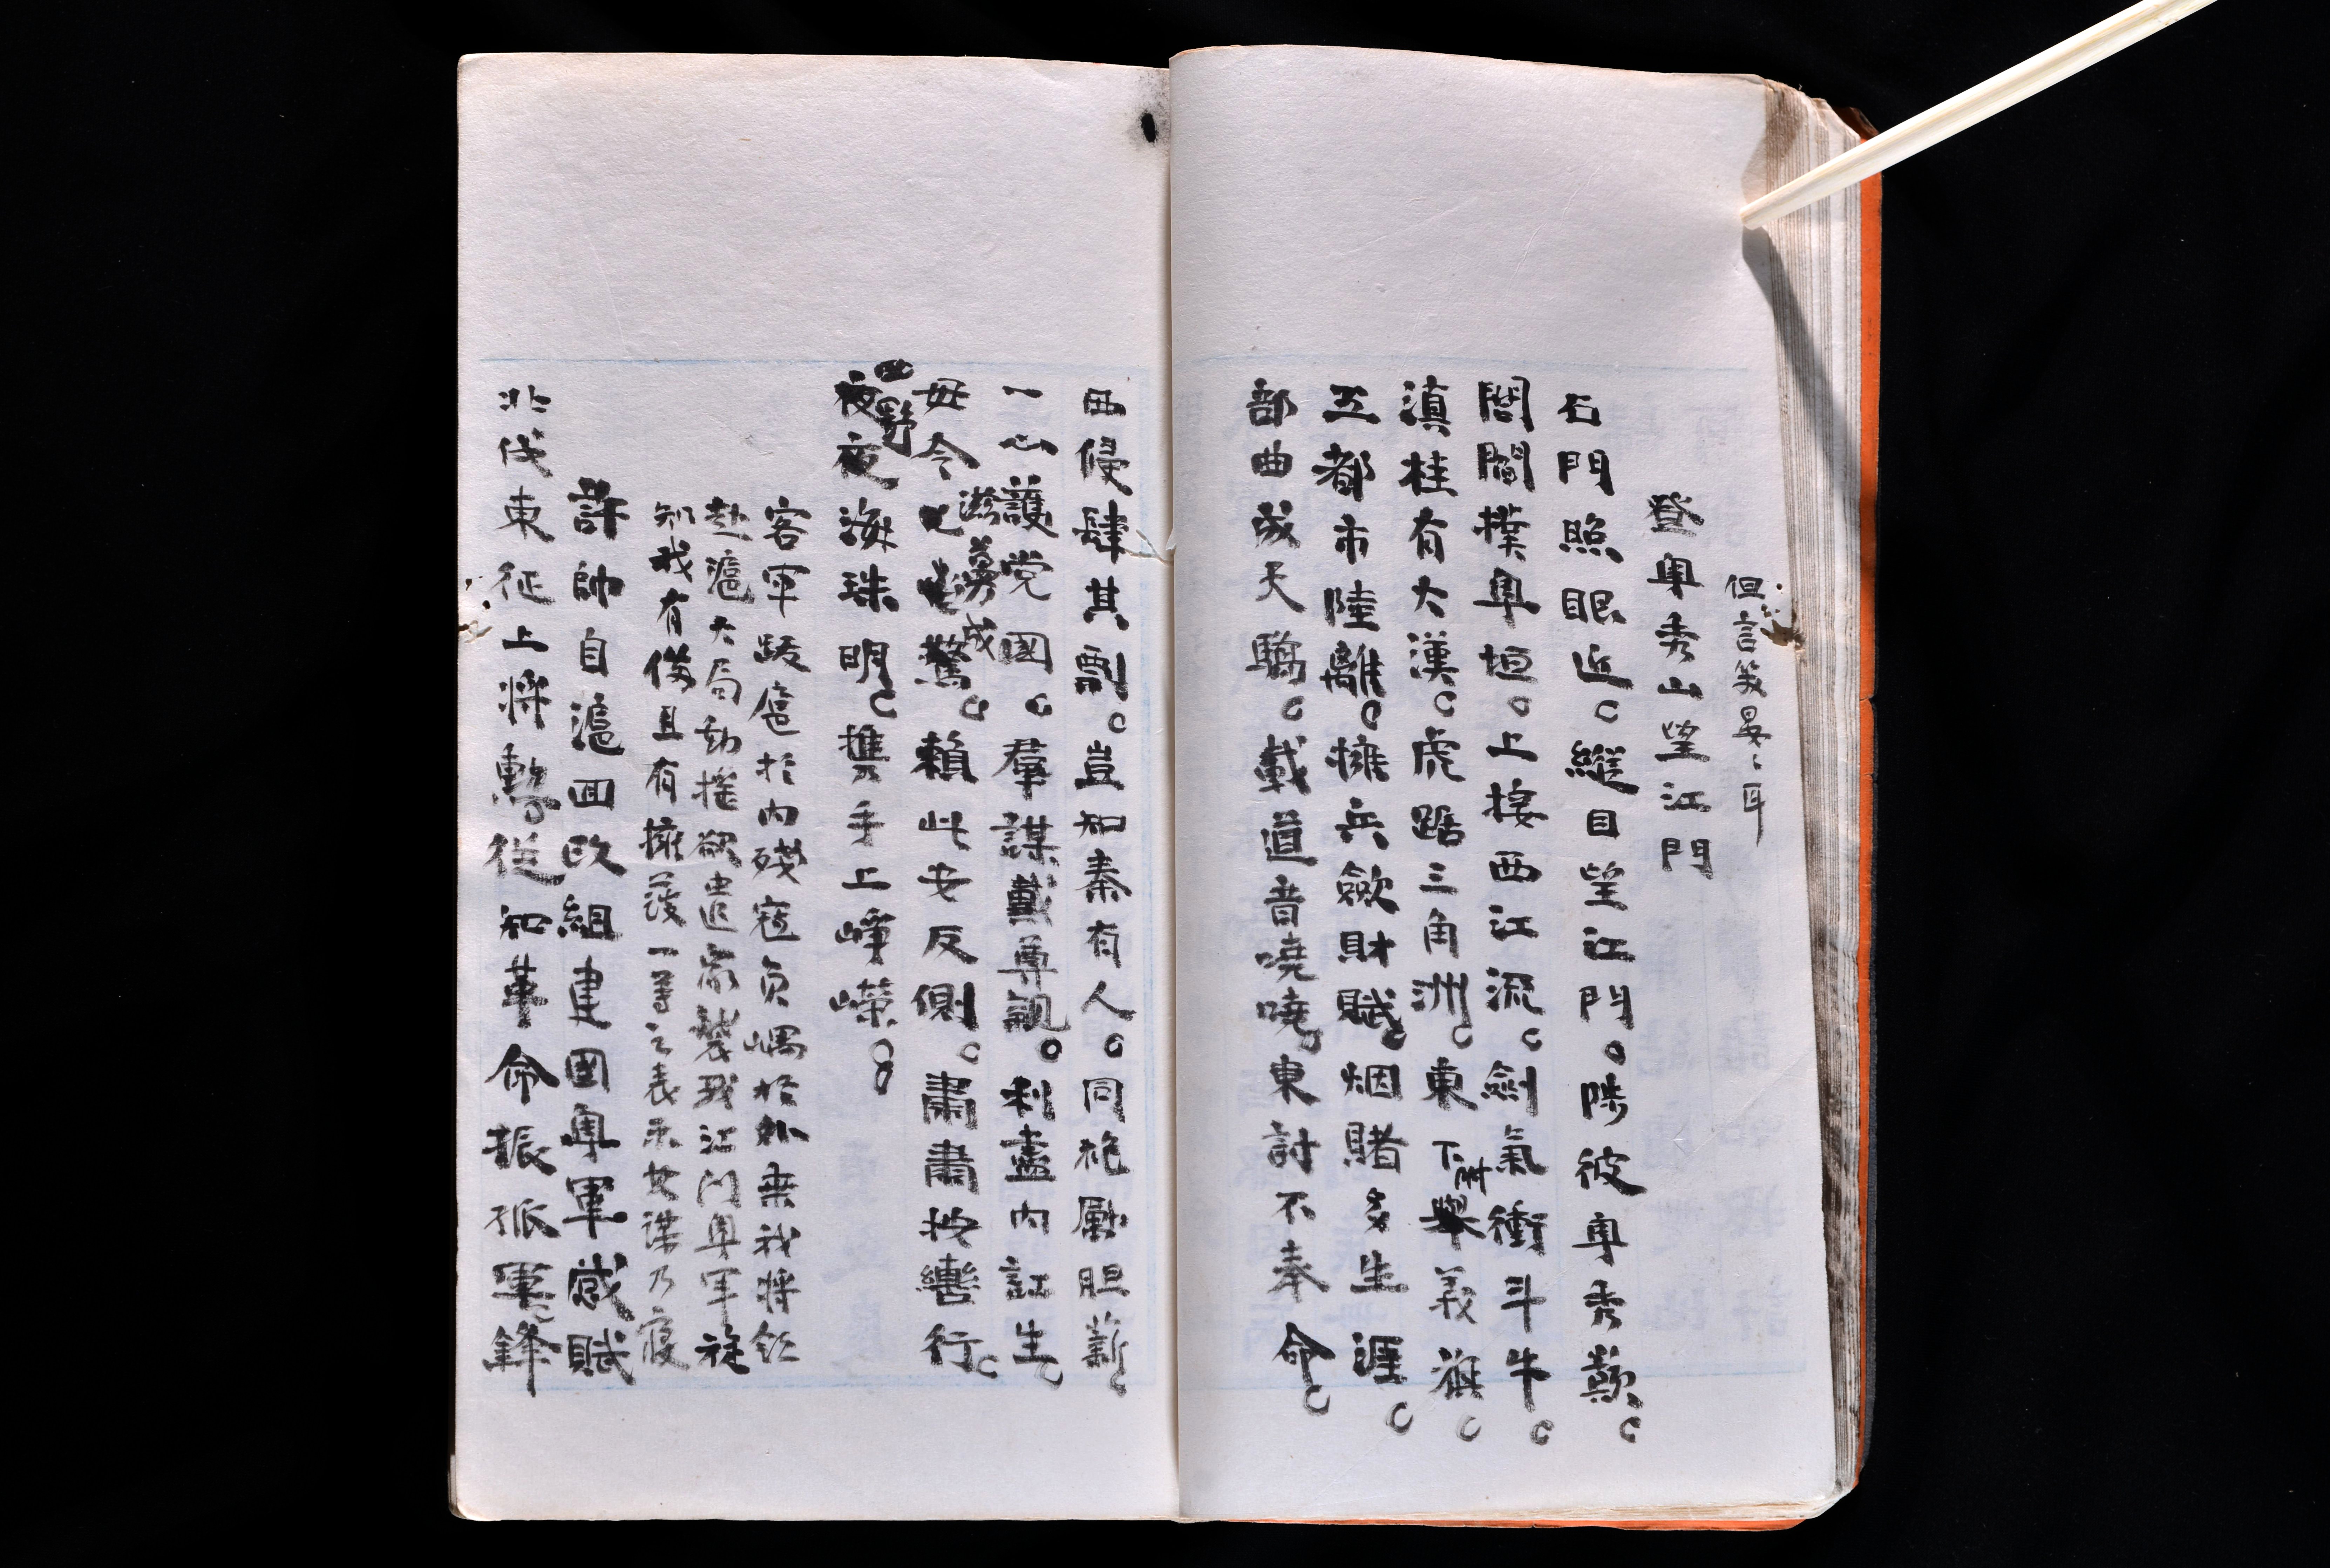 但言笑晏〻耳
登粵秀山望江門
石門照眼近。縱目望江門。陟彼粵秀巔。
閭閻撲粵垣。上接西江流。劍氣衝斗牛。
滇桂有大漢。虎踞三角洲。東下附義旗。
五都市陸離。擁兵斂財賦。烟賭多生涯。
部曲成天驕。載道音嘵嘵。東討不奉命。
西侵肆其剽。豈知秦有人。同袍勵胆薪。
一心護党國。羣謀戴尊親。利盡內訌生。
毋令滋蔓成驚。賴此安反側。肅肅按轡行。
四野
夜夜海珠明。攜手上崢嶸。
客軍跋扈於內殘寇負嵎於外乘我將領
赴滬大局動搖欲聿追襲我江門粵軍旋
知我有備且有擁護一尊之表示其謀乃寢
許帥自滬回政組建國粵軍感賦
北伐東征上將勲。從知革命振孤軍。鋒